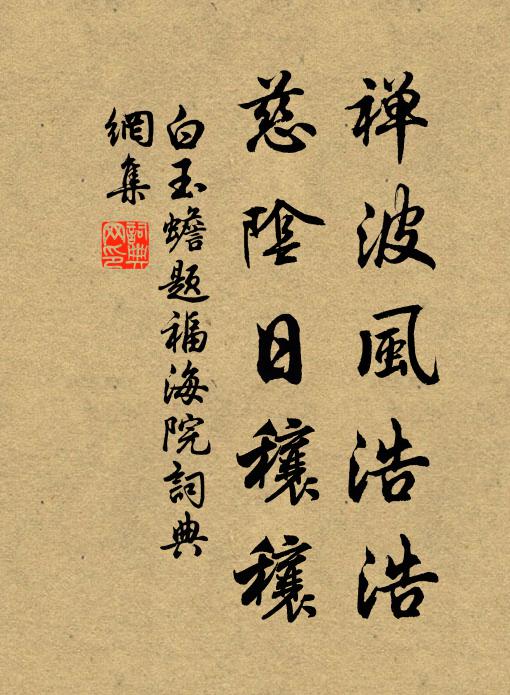 禅波風浩浩
慈陰日穰穰
白玉蟾题福海院詞典
網集
詞典
网印